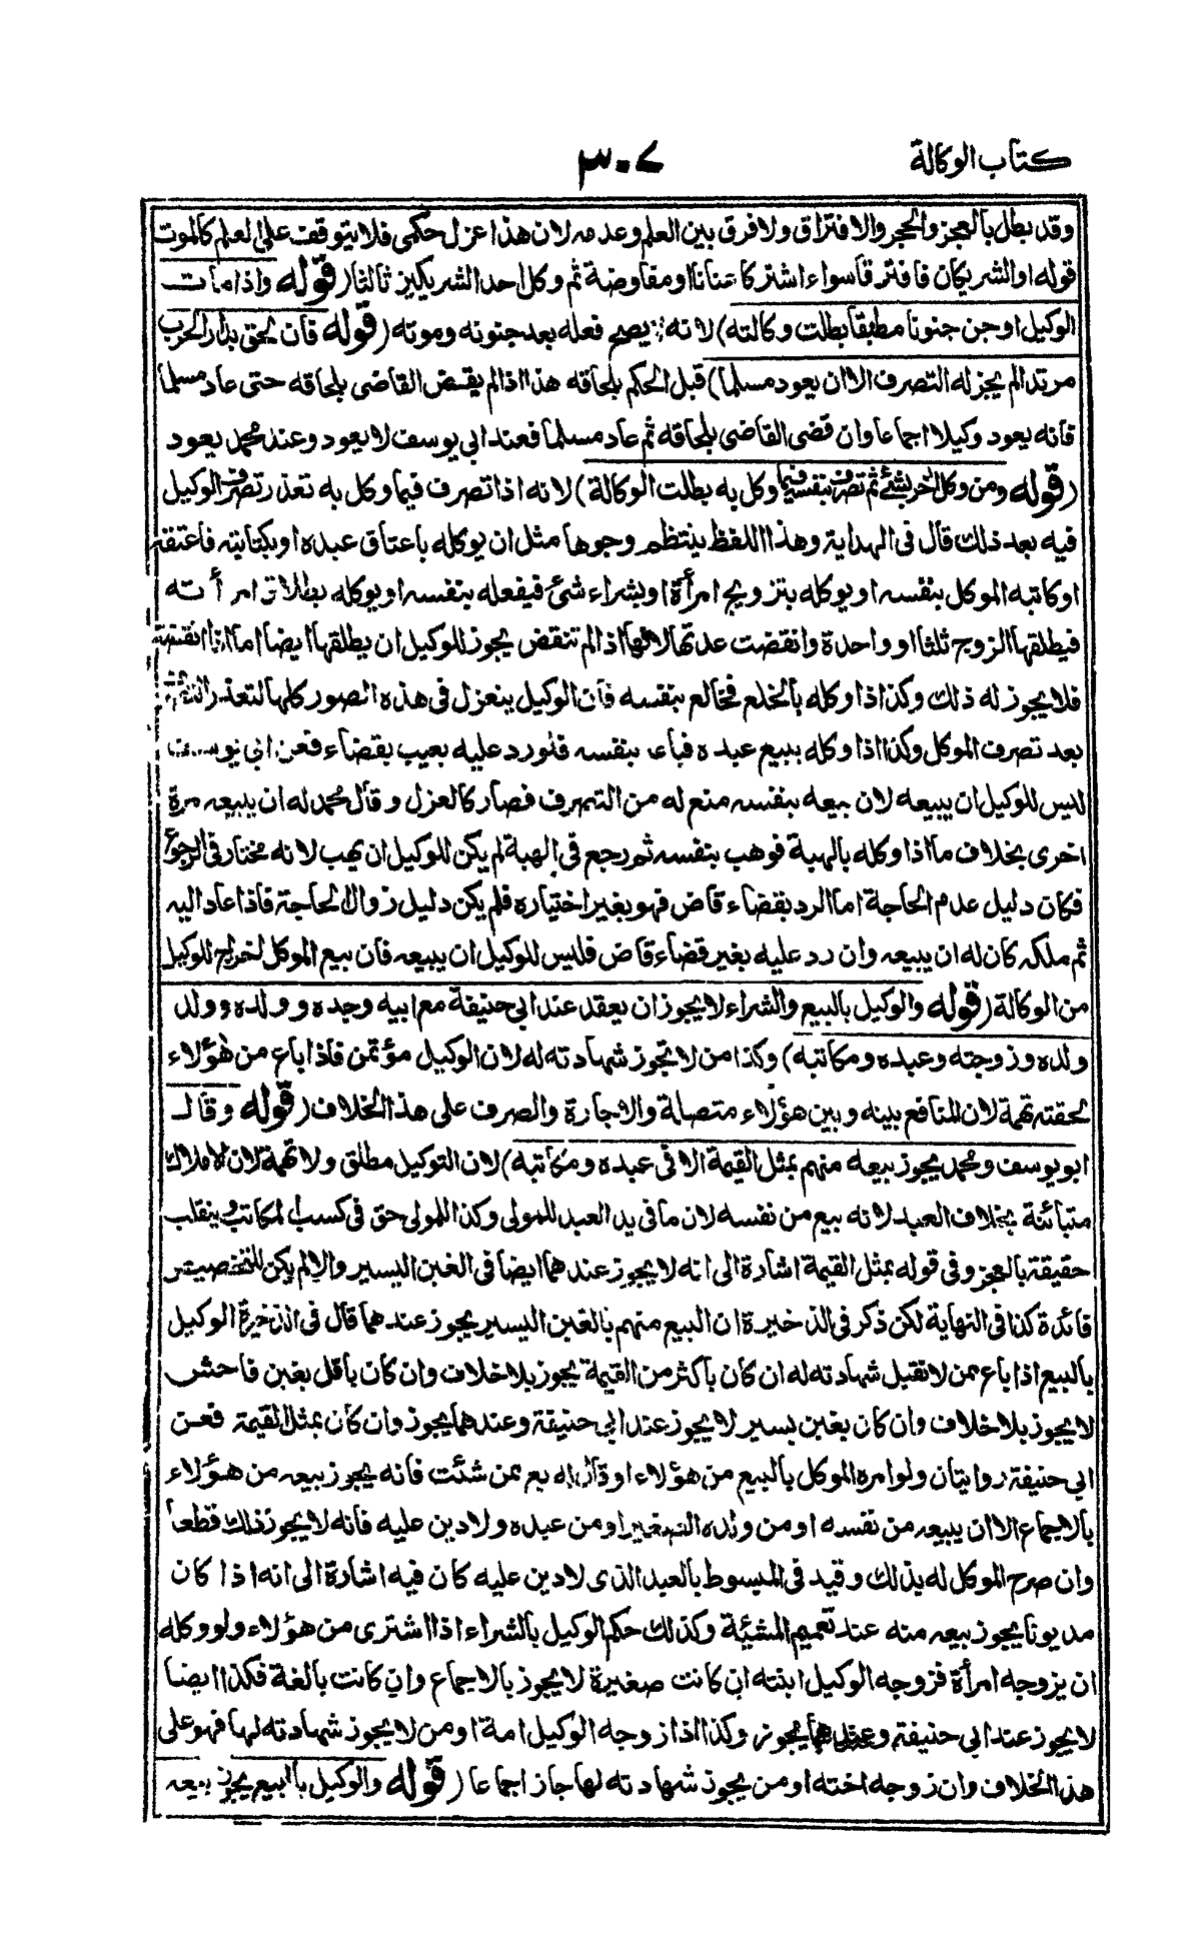 كتاب الوكالة
٣٠٧
وقد بطل بالعجز والحجر والافتراق ولا فرق بين العلم وعدمه لان هذا عزل حكمى فلا يتوقف على العلم كالموت
قوله او الشريكان فافترقا سواء اشتركا عنانا او مفاوضة ثم وكل احد الشريكين ثالثا (قوله واذا مات
الوكيل او جن جنونا مطبقا بطلت وكالته) لانه يصح فعله بعد جنونه وموته (قوله فان لحق بدار الحرب
مرتدا لم يجز له التصرف الا ان يعود مسلما) قبل الحكم بلحاقه هذا اذا لم يقض القاضى بلحاقه حتى عاد مسلما
فانه يعود وكيلا اجماعا وان قضى القاضى بلحاقه ثم عاد مسلما فعند ابي يوسف لا يعود وعند محمد يعود
(قوله ومن وكل اخر بشئ ثم تصرف بنفسه فيما وكل به بطلت الوكالة) لانه اذا تصرف فيما وكل به تعذر تصرف الوكيل
فيه بعد ذلك قال فى الهداية وهذا اللفظ ينتظم وجوها مثل ان يوكله باعتاق عبده او بكتابته فاعتقه
او كاتبه الموكل بنفسه او يوكله بتزويج امرأة او بشراء شئ فيفعله بنفسه او يوكله بطلاق امرأته
فيطلقها الزوج ثلثا او واحدة وانقضت عدتها لانها اذا لم تنقض يجوز للوكيل ان يطلقها ايضا اما اذا انقضت
فلا يجوز له ذلك وكذا اذا وكله بالخلع فخالع بنفسه فان الوكيل ينعزل فى هذه الصور كلها لتعذر التصرف
بعد تصرف الموكل وكذا اذا وكله ببيع عبده فباع بنفسه فلو رد عليه بعيب بقضاء فعن ابي يوسف
ليس للوكيل ان يبيعه لان بيعه بنفسه منع له من التصرف فصار كالعزل وقال محمد له ان يبيعه مرة
اخرى بخلاف ما اذا وكله بالهبة فوهب بنفسه ثم رجع فى الهبة لم يكن للوكيل ان يهب لانه مختار فى الرجوع
فكان دليل عدم الحاجة اما الرد بقضاء قاض فهو بغير اختياره فلم يكن دليل زوال الحاجة فاذا عاد اليه
ثم ملكه كان له ان يبيعه وان رد عليه بغير قضاء قاض فليس للوكيل ان يبيعه فان بيع الموكل اخراج للوكيل
من الوكالة (قوله والوكيل بالبيع والشراء لا يجوز ان يعقد عند ابي حنيفة مع ابيه وجده وولده وولد
ولده وزوجته وعبده ومكاتبه) وكذا من لا تجوز شهادته له لان الوكيل مؤتمن فاذا باع من هؤلاء
لحقته تهمة لان المنافع بينه وبين هؤلاء متصلة والاجارة والصرف على هذا الخلاف (قوله وقال
ابو يوسف ومحمد يجوز بيعه منهم بمثل القيمة الا فى عبده ومكاتبه) لان التوكيل مطلق ولا تهمة لان الاملاك
متبائنة بخلاف العبد لانه بيع من نفسه لان ما فى يد العبد للمولى وكذا للمولى حق فى كسب المكاتب وينقلب
حقيقة بالعجز وفى قوله بمثل القيمة اشارة الى انه لا يجوز عندهما ايضا فى الغبن اليسير والا لم يكن للتخصيص
فائدة كذا فى النهاية لكن ذكر فى الذخيرة ان البيع منهم بالغبن اليسير يجوز عندهما قال فى الذخيرة الوكيل
بالبيع اذا باع ممن لا تقبل شهادته له ان كان باكثر من القيمة يجوز بلا خلاف وان كان باقل بغبن فاحش
لا يجوز بلا خلاف وان كان بغبن يسير لا يجوز عند ابي حنيفة وعندهما يجوز وان كان بمثل القيمة فعن
ابي حنيفة روايتان ولو امره الموكل بالبيع من هؤلاء او قال له بع ممن شئت فانه يجوز بيعه من هؤلاء
بالاجماع الا ان يبيعه من نفسه او من ولده الصغير او من عبده ولا دين عليه فانه لا يجوز ذلك قطعا
وان صرح الموكل له بذلك وقيد فى المبسوط بالعبد الذى لا دين عليه كان فيه اشارة الى انه اذا كان
مديونا يجوز بيعه منه عند تعميم المشيئة وكذلك حكم الوكيل بالشراء اذا اشترى من هؤلاء ولو وكله
ان يزوجه امرأة فزوجه الوكيل ابنته ان كانت صغيرة لا يجوز بالاجماع وان كانت بالغة فكذا ايضا
لا يجوز عند ابي حنيفة وعندهما يجوز وكذا اذا زوجه الوكيل امة او من لا يجوز شهادته لها فهو على
هذا الخلاف وان زوجه اخته او من يجوز شهادته لها جاز اجماعا (قوله والوكيل بالبيع يجوز بيعه